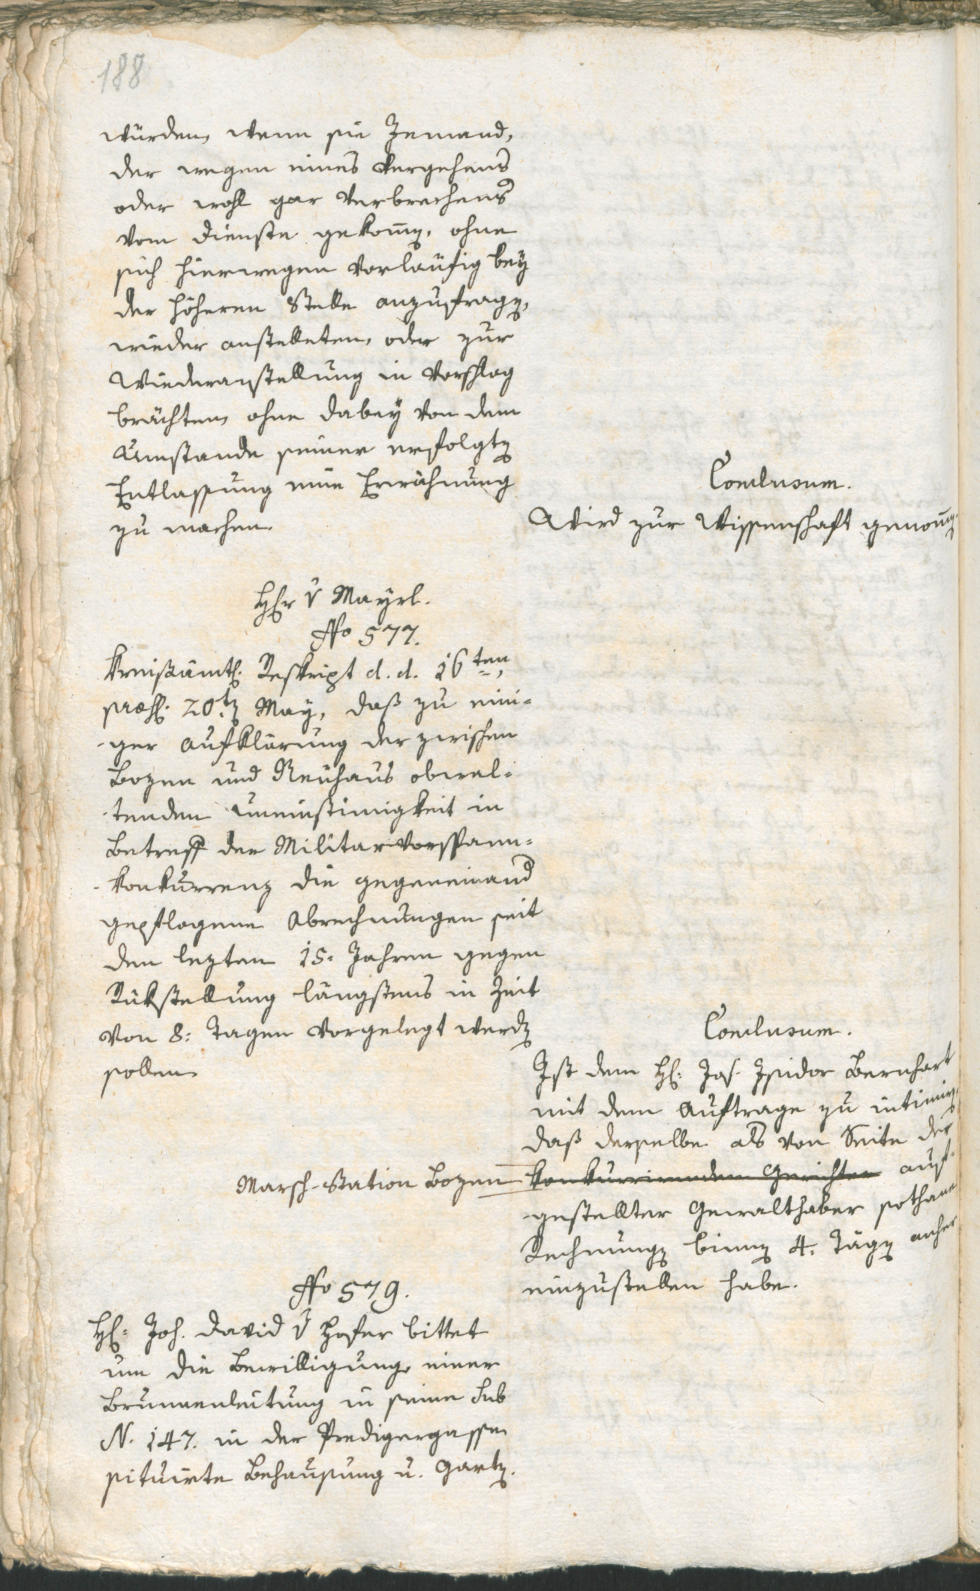 188
würden, wenn sie Jemand,
der wegen eines Vergehens
oder wohl gar Verbrechens
vom Dienste gekomē, ohne
sich hierwegen vorläufig bey
der höheren Stelle anzufragē,
wieder anstelleten, oder zur
Wiederanstellung in Vorschlag
brächten, ohne dabey von dem
Umstande seiner erfolgtē
Entlassung eine Erwähnung
zu machen.
Conclusum.
Wird zur Wissenschaft genomē.
Hhr v Mayrl.
No 577.
Kreisämtl. Reskript d. d. 16ten,
præs. 20tē May, daß zu eini-
-ger Aufklärung der zwischen
Bozen und Neuhaus obwal-
-tenden Uneinstimigkeit in
Betreff der Militar Vorspann-
-konkurrenz die gegeneinand
gepflogene Abrechnungen seit
den lezten 15. Jahren gegen
Rükstellung längstens in Zeit
von 8: Tagen vorgelegt werdē
sollen.
Conclusum.
Ist dem H: Jos. Isidor Bernhart
mit dem Auftrage zu intimirē,
daß derselbe als von Seite der
Marsch-Station Bozen konkurrirenden Gerichten auf-
-gestellter Gewalthaber sothane
Rechnungē binnē 4. Tägē anher
einzustellen habe.
No 579.
H: Joh. David v Hofer bittet
um die Bewilligung einer
Brunnenleitung in seine sub
N. 147. in der Predigergassen
situirte Behausung u. Gartē.